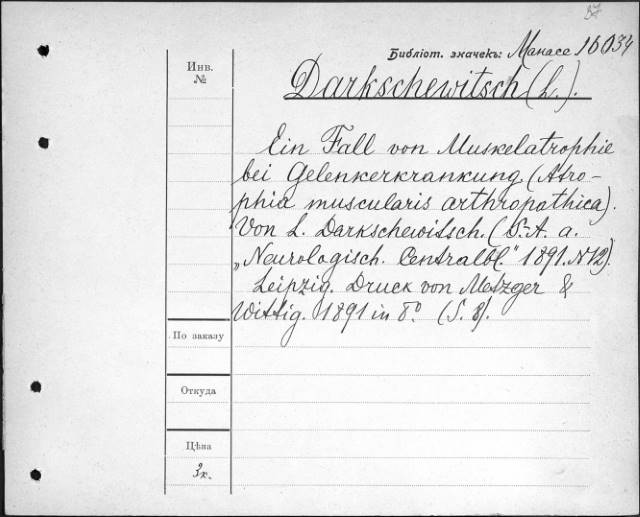 Библіот. значекъ: Манасе 16034
Инв.
№
Darkschewitsch (L.).
Ein Fall von Muskelatrophie
bei Gelenkerkrankung. (Atro-
phia muscularis arthropathica).
Von L. Darkschewitsch. (S.-A. a.
„Neurologisch. Centralbl." 1891. N 12).
Leipzig. Druck von Metzger &
Wittig. 1891 in 8° (S. 8).
По заказу
Откуда
Цѣна
3к.